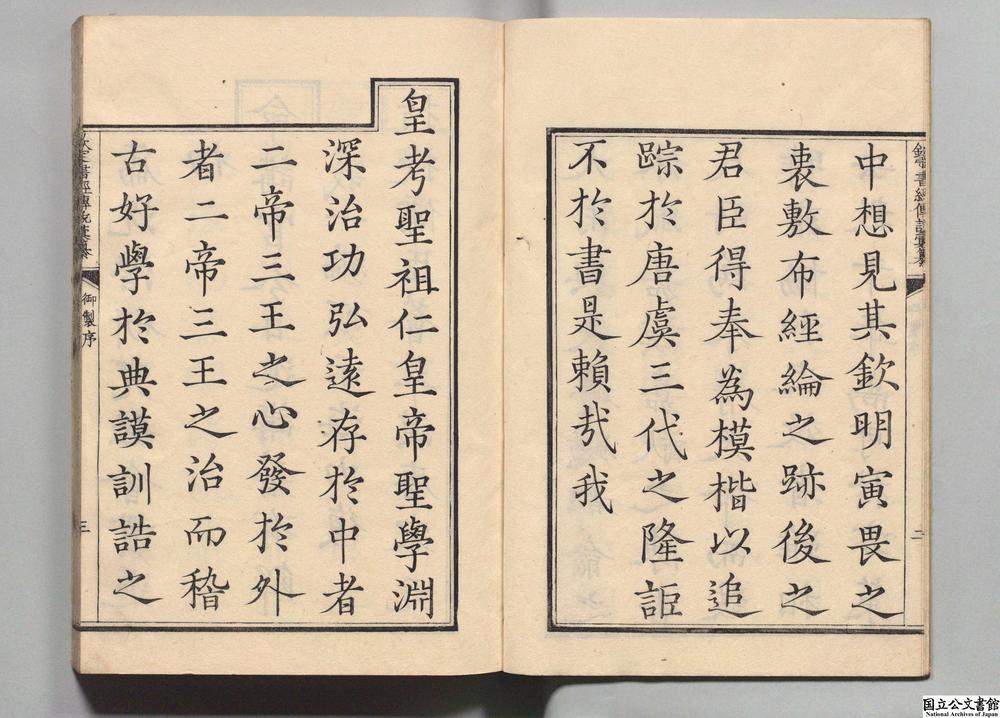 欽定書經傳說彙纂
二
中想見其欽明寅畏之
衷敷布經綸之跡後之
君臣得奉為模楷以追
踪於唐虞三代之隆詎
不於書是賴哉我
皇考聖祖仁皇帝聖學淵
深治功弘遠存於中者
二帝三王之心發於外
者二帝三王之治而稽
古好學於典謨訓誥之
欽定書經傳說彙纂
御製序
三
国立公文書館
National Archives of Japan